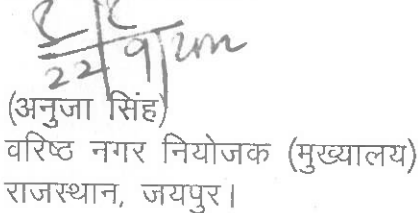 22/9
(अनुजा सिंह)
वरिष्ठ नगर नियोजक (मुख्यालय)
राजस्थान, जयपुर।